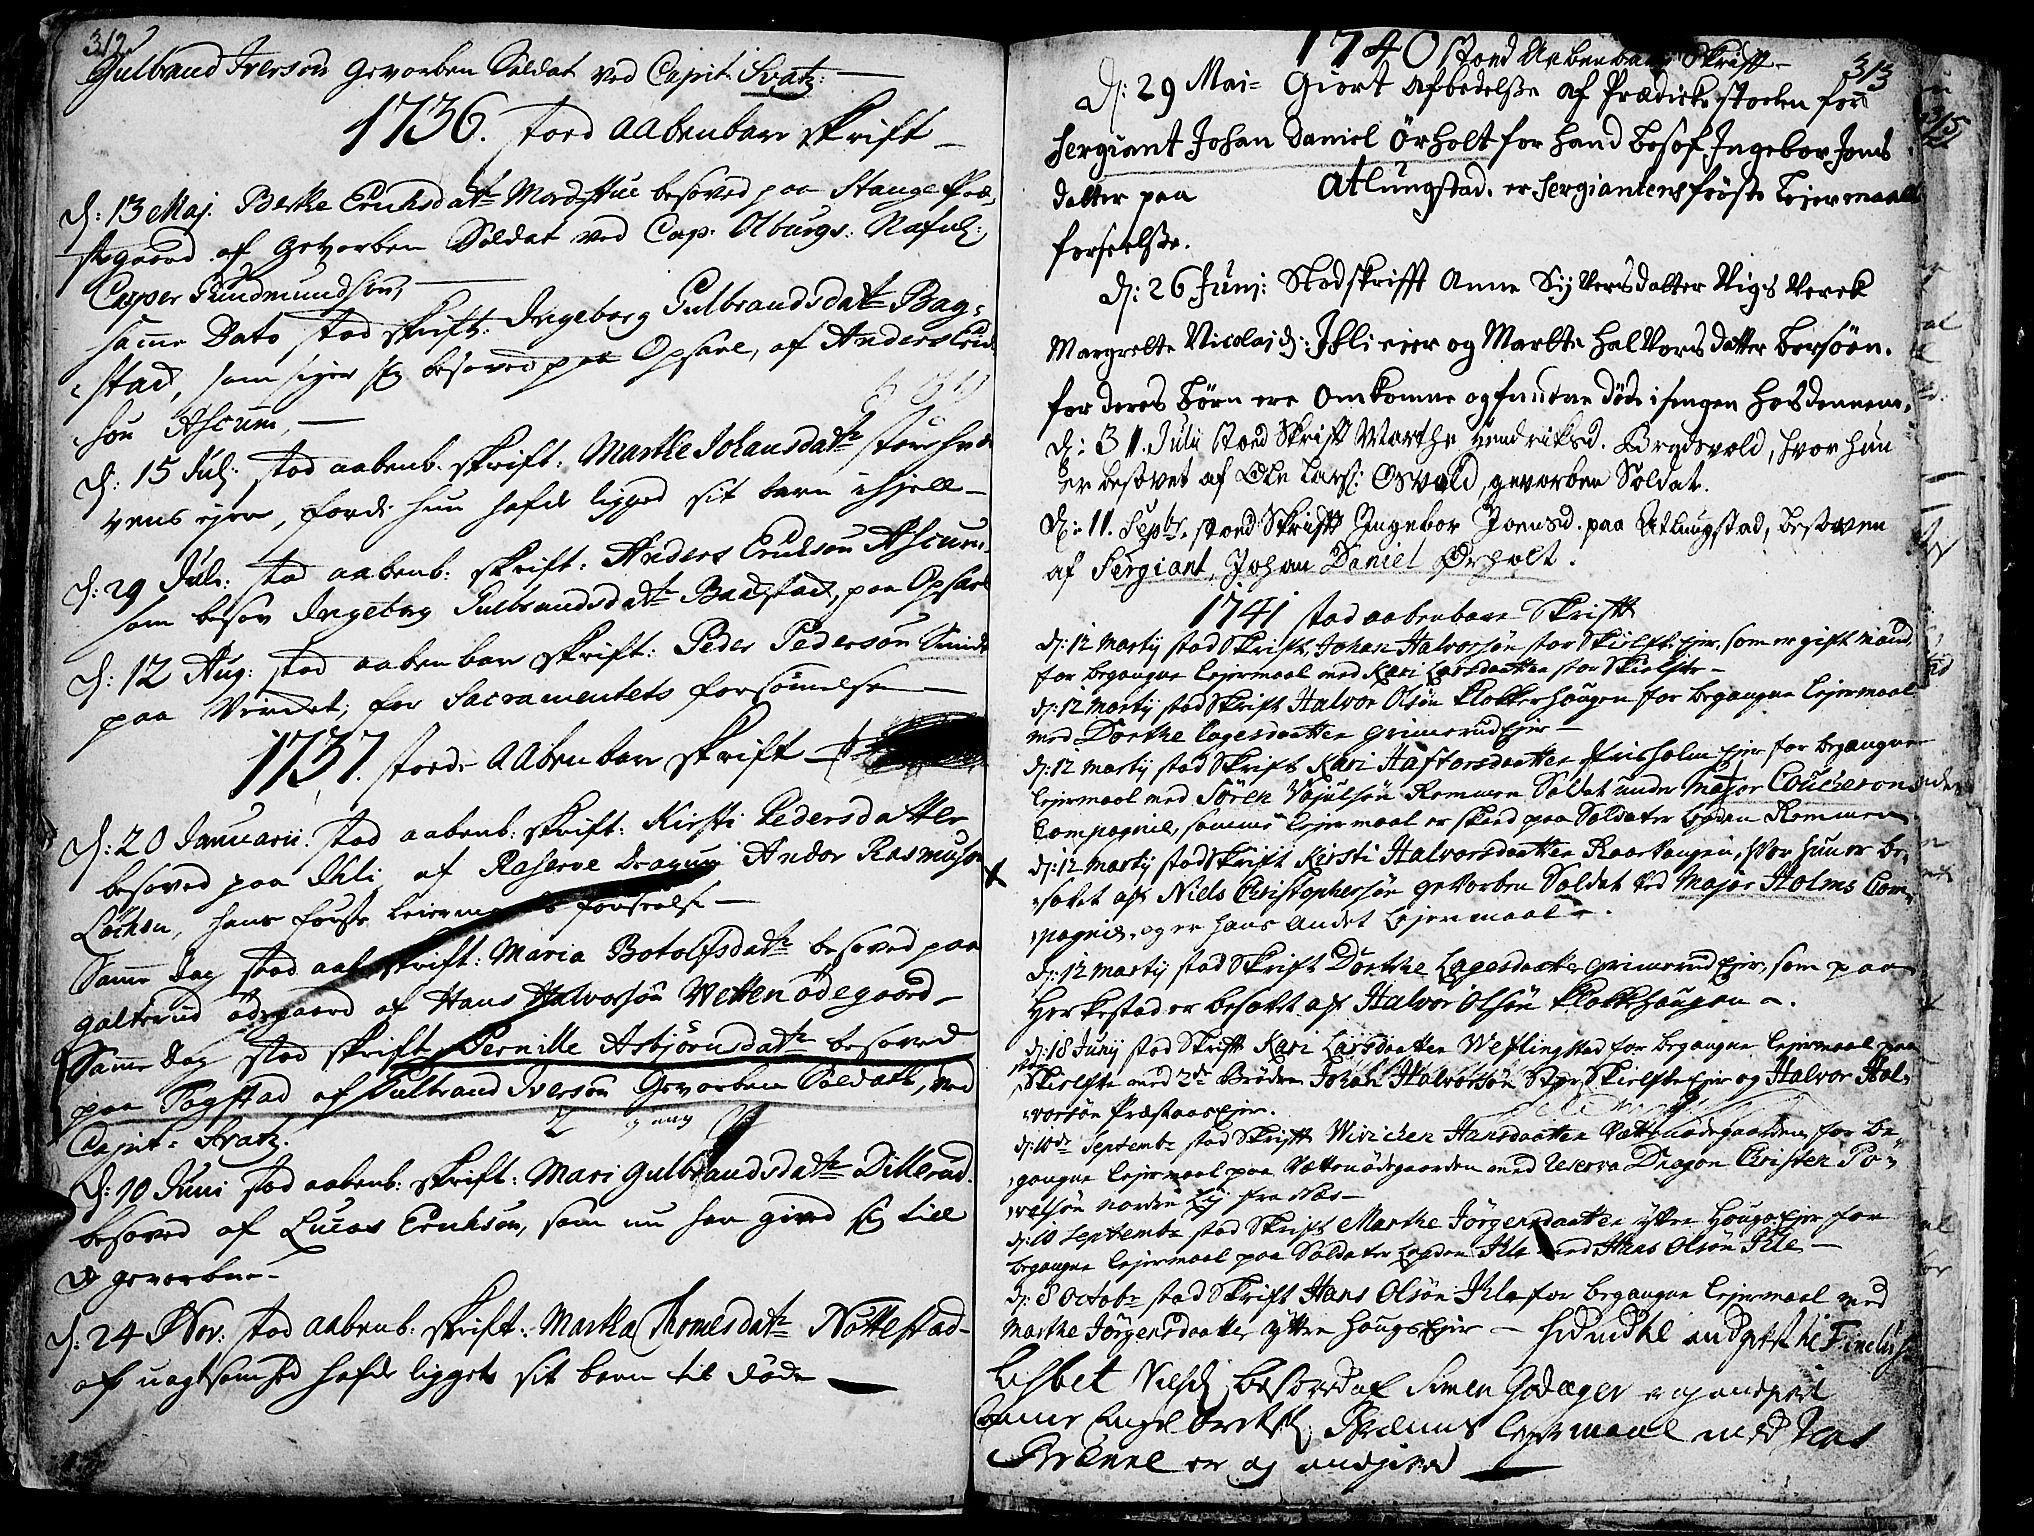 312
Gulbrand Iversøn gevorben Soldat ved Capit: Svatz:
1736. stoed aabenbare skrift
d: 13 Maj. Berthe Erichsdattr besoved paa Stange Præ-
stegaard af gevorben Soldat ved Cap. Olburgs:
Casper Gudmundsøn,
samme Dato stod skrift: Ingeborg Gulbrandsdattr Bag-
stad, som siger sig besoved paa Opsael, af Anders Erich-
søn Ascum,
d: 15 Julj stod aabenb. skrift: Marthe Johansdattr
ejer, fordi hun hafde ligged sit barn ihjell
d: 29 Juli: stod aabenb: skrift: Anders Erichsøn Ascum
som besov Ingeborg Gulbrandsdattr Bagstad, paa Opsael
d: 12 Aug: stod aabenbare skrift: Peder Pedersøn
paa Verdet, for Sacramentets forsømelse
1737. stoede aabenbare skrift
d: 20 Januarii. stod aabenb: skrift: Kirsti Pedersdatter
besoved paa Ihli af Reserve Dragun Andor Rasmusøn
Løchen, hans første Leiermaals forseelse
Samme dag stod aab. skrift: Maria Botolfsdattr besoved paa
galterud ødegaard af Hans Halvorsøn Wettenødegaard
Samme dag stod skrift Pernille Asbjørnsdattr besoved
paa Sogstad af Gulbrand Iversøn Gevorben Soldatt, ved
Capit: Svatz.
d: 10 Juni stod aabenb: skrift: Mari Gulbrandsdattr Dillerud
besoved af Lucas Erichsøn, som nu har gived sig till
de gevorbne
d: 24 Nov: stod aabenb: skrift: Martha Thomesdattr Nøttestad
af uagtsomhed hafde ligget sit barn til døde
1740 stoed Aabenbare Skrifft
313
d: 29 Mai- Giort Afbedelsse af Prædicke stoelen for
Sergiant Johan Daniel Örholt for hand besof Ingebor Jons
datter paa Atlungstad. er Sergiantens første Leiermaals
forseelsse.
d: 26 Junj: Stod skrifft Anne Sijversdatter Vigs Verck
Margrette Nicolajd: Ihli eier og Marthe Halvors datter Børsøen.
for deres Børn ere omkomne og fundne døde i sengen hos dennem.
d: 31. Julii stoed Skrift Marthe Hendriksd. Brydsvold, hvor hun
er besovet af Ole Lars: Osvold, gevorben Soldat.
d: 11. Septr. stoed Skrift Ingebor Joensd. paa Atlungstad, besoven
af Sergiant, Johan Daniel Ørholt.
1741 stod aabenbare Skrifft
d: 12 Martij stod Skrift, Johan Halvorsøn stor Skielste Ejer, som er gift mand,
for begangne Lejermaal med Kari Larsdaatter stor Skielste
d: 12 Martij stod Skrift Halvor Olsøn Klokkerhaugen for begangne Lejermaal
med Dorthe Lagesdaatter Grimerud Ejer
d: 12 Martij stod Skrift Kari Haftorsdaatter Ejer for begangne
Lejermaal med Sören Remmen Soldat under Major Coucheron
Compagnie, samme Lejermaal er skeed paa Soldater Leyden Remmen
d: 12 Martij stod Skrift Kirsti Halvorsdaatter, hvor hun er be-
sovet af Niels Christophersøn gevorben Soldat ved Major Holms Com-
pagnie, og er hans andet Lejermaal.
d: 12 Martij stod Skrift Dorthe Lagesdaatter Grimerud Ejer, som paa
Herkestad er besovet af Halvor Olsøn Klokkerhaugen.
d: 18 Junij stod Skrift Kari Larsdaatter Westlingstad for begangne Lejermaal paa
Skielste med 2de Brødre Johan Halvorsøn Stor Skielste Ejer og Halvor Hal-
vorsøn Præstaas Ejer.
d: 10de Septembr stod Skrift Wivicken Hansdaatter Vættenødegaarden for be-
gangne Lejermaal paa Vættenødegaarden med Reserve Dragon Christen Po-
velsøn fra Næs
d: 10 Septembr stod Skrift Marthe Jörgensdaatter yttre Houg Ejer for
begangne Lejermaal paa Soldater Leyden Ihle med Hans Olsøn Ihle
d: 8 Octobr stod Skrift Hans Olsøn Ihle for begangne Lejermaal med
Marthe Jörgensdaatter yttre Hougs Ejer
Lisbet Nielsd besoved af Simen Godager er og angived
Lejermaal med
er og angived